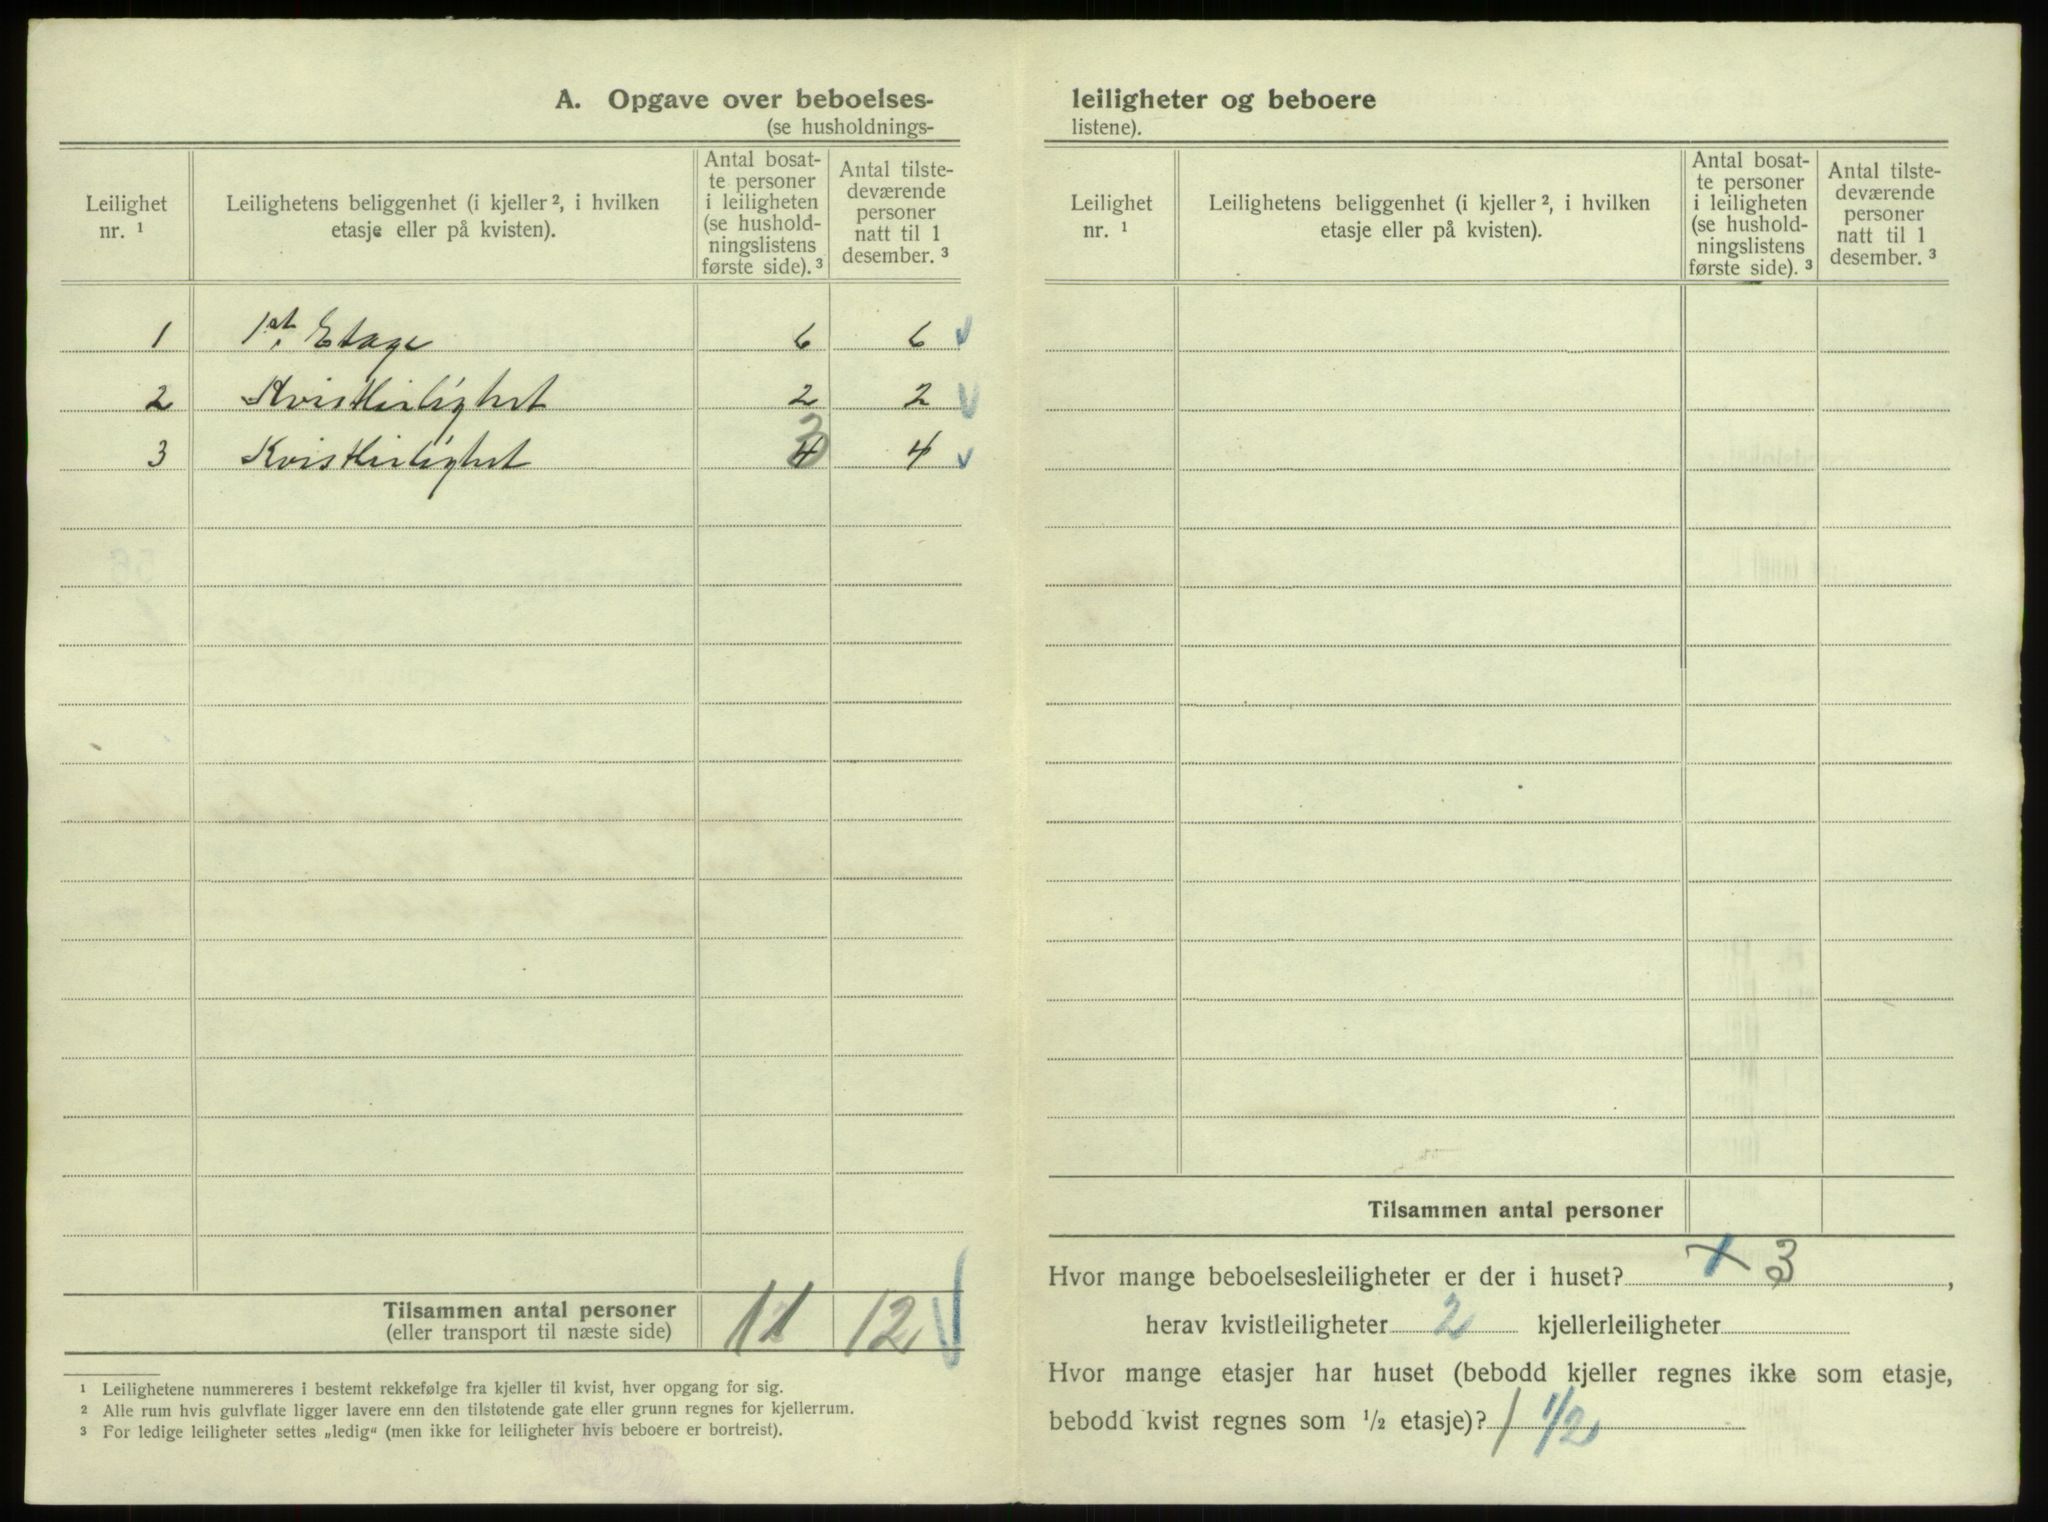 A. Opgave over beboelses-
(se husholdnings-
Leilighet nr. ¹
Leilighetens beliggenhet (i kjeller ², i hvilken
etasje eller på kvisten).
Antal bosat-
te personer
i leiligheten
(se hushold-
ningslistens
første side). ³
Antal tilste-
deværende
personer
natt til 1
desember. ³
1 1st. Etage 6 6
2 Kvistleilighet 2 2
3 Kvistleilighet 4 3 4
Tilsammen antal personer 11 12
(eller transport til næste side)
¹ Leilighetene nummereres i bestemt rekkefølge fra kjeller til kvist, hver opgang for sig.
² Alle rum hvis gulvflate ligger lavere enn den tilstøtende gate eller grunn regnes for kjellerrum.
³ For ledige leiligheter settes „ledig“ (men ikke for leiligheter hvis beboere er bortreist).
leiligheter og beboere
listene).
Leilighet
nr. ¹
Leilighetens beliggenhet (i kjeller ², i hvilken
etasje eller på kvisten).
Antal bosat-
te personer
i leiligheten
(se hushold-
ningslistens
første side). ³
Antal tilste-
deværende
personer
natt til 1
desember. ³
Tilsammen antal personer
Hvor mange beboelsesleiligheter er der i huset? 3,
herav kvistleiligheter 2 kjellerleiligheter
Hvor mange etasjer har huset (bebodd kjeller regnes ikke som etasje,
bebodd kvist regnes som ½ etasje)? 1 1/2